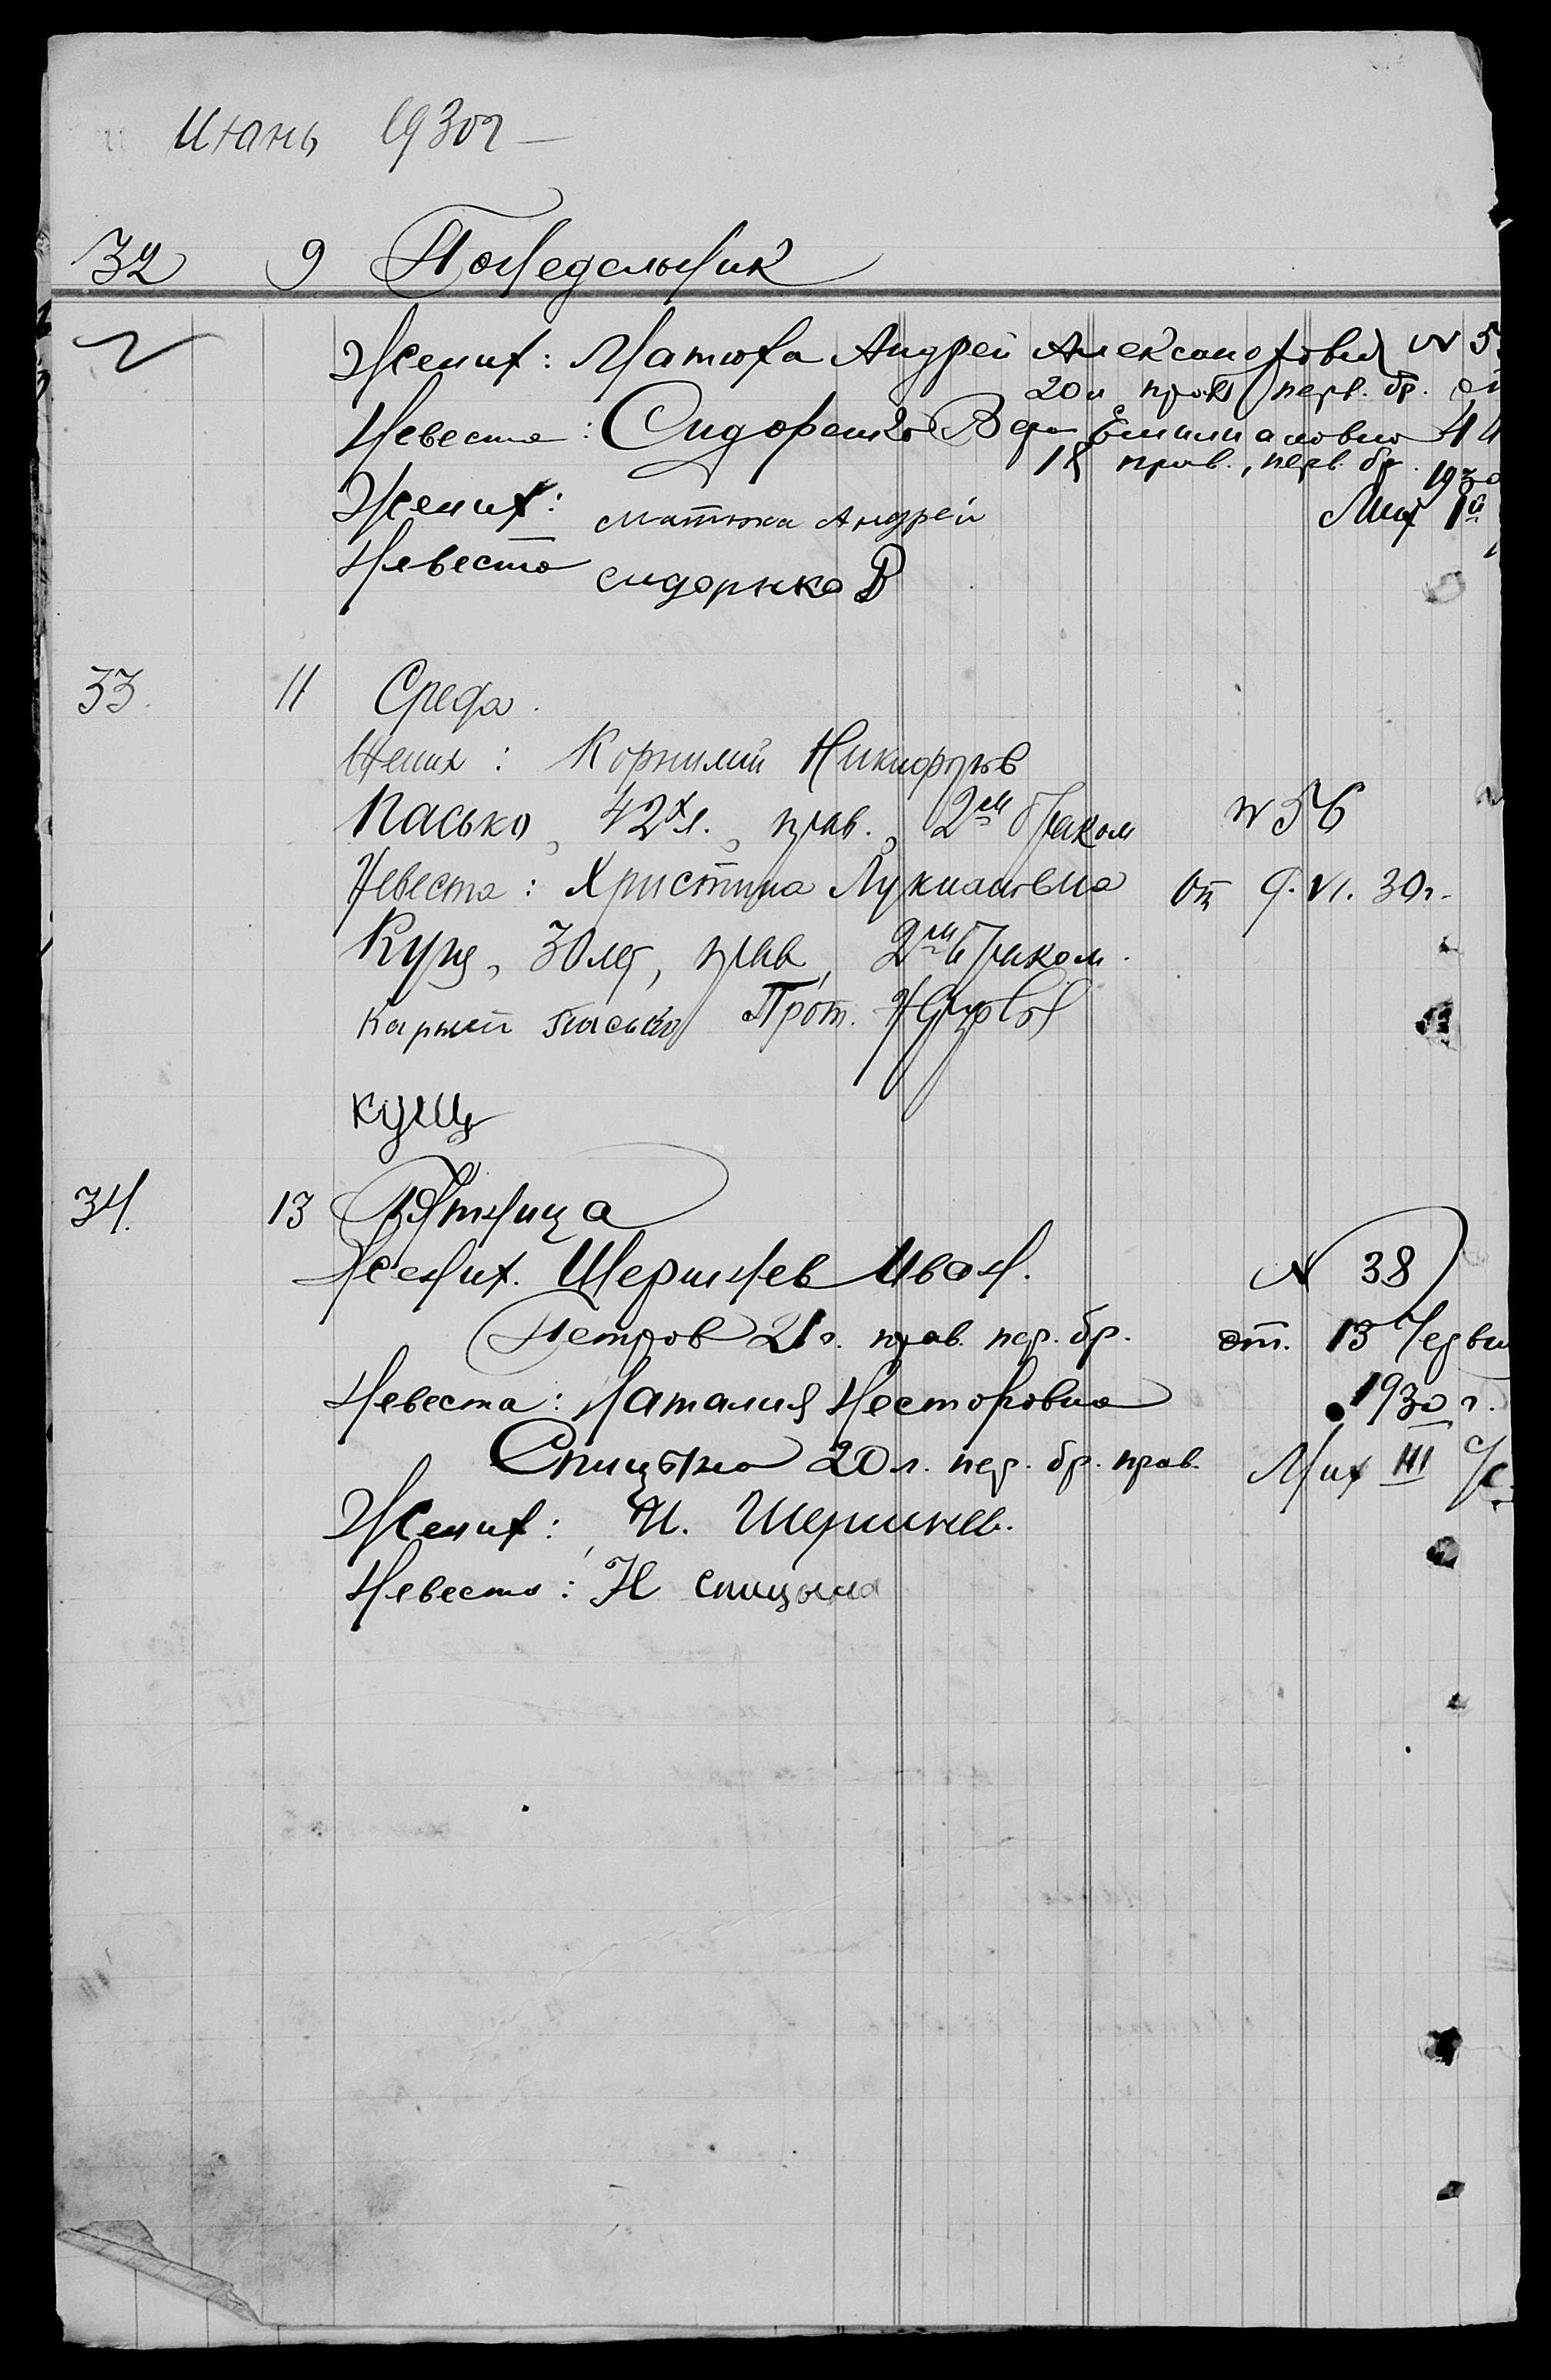 Июнь 1930г
32 9 Понедельник
Жених: Матюха Андрей Александрович N 5
20 л прав перв. бр.
Невеста: Сидоренко Вера Емилиановна
18 прав., перв. бр. 1930
Жених: матюха Андрей Мих 1й
Невеста сидорнко В
33. 11 Среда.
Жених: Корнилий Никифоров
Пасько, 42х л., прав., 2м браком N 56
Невеста: Христина Лукиановна от 9.VI.30г.
Кущ, 30 лет, прав, 2м браком.
Карней Пасько Прот.
кущ
34. 13 Пятница
Жених. Шершнев Иван. N 38
Петров 21 г. прав. пер. бр. от. 13 Червн
Невеста: Наталия Несторовна 1930 г.
Спицына 20 л. пер. бр. прав. Мих III
Жених: И. Шершнев.
Невеста: Н спицына